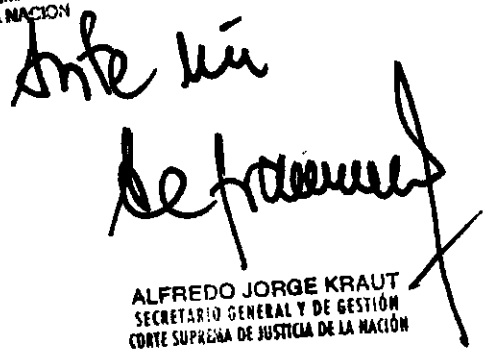 A NACION
Ante mí
ALFREDO JORGE KRAUT
SECRETARIO GENERAL Y DE GESTIÓN
CORTE SUPREMA DE JUSTICIA DE LA NACIÓN